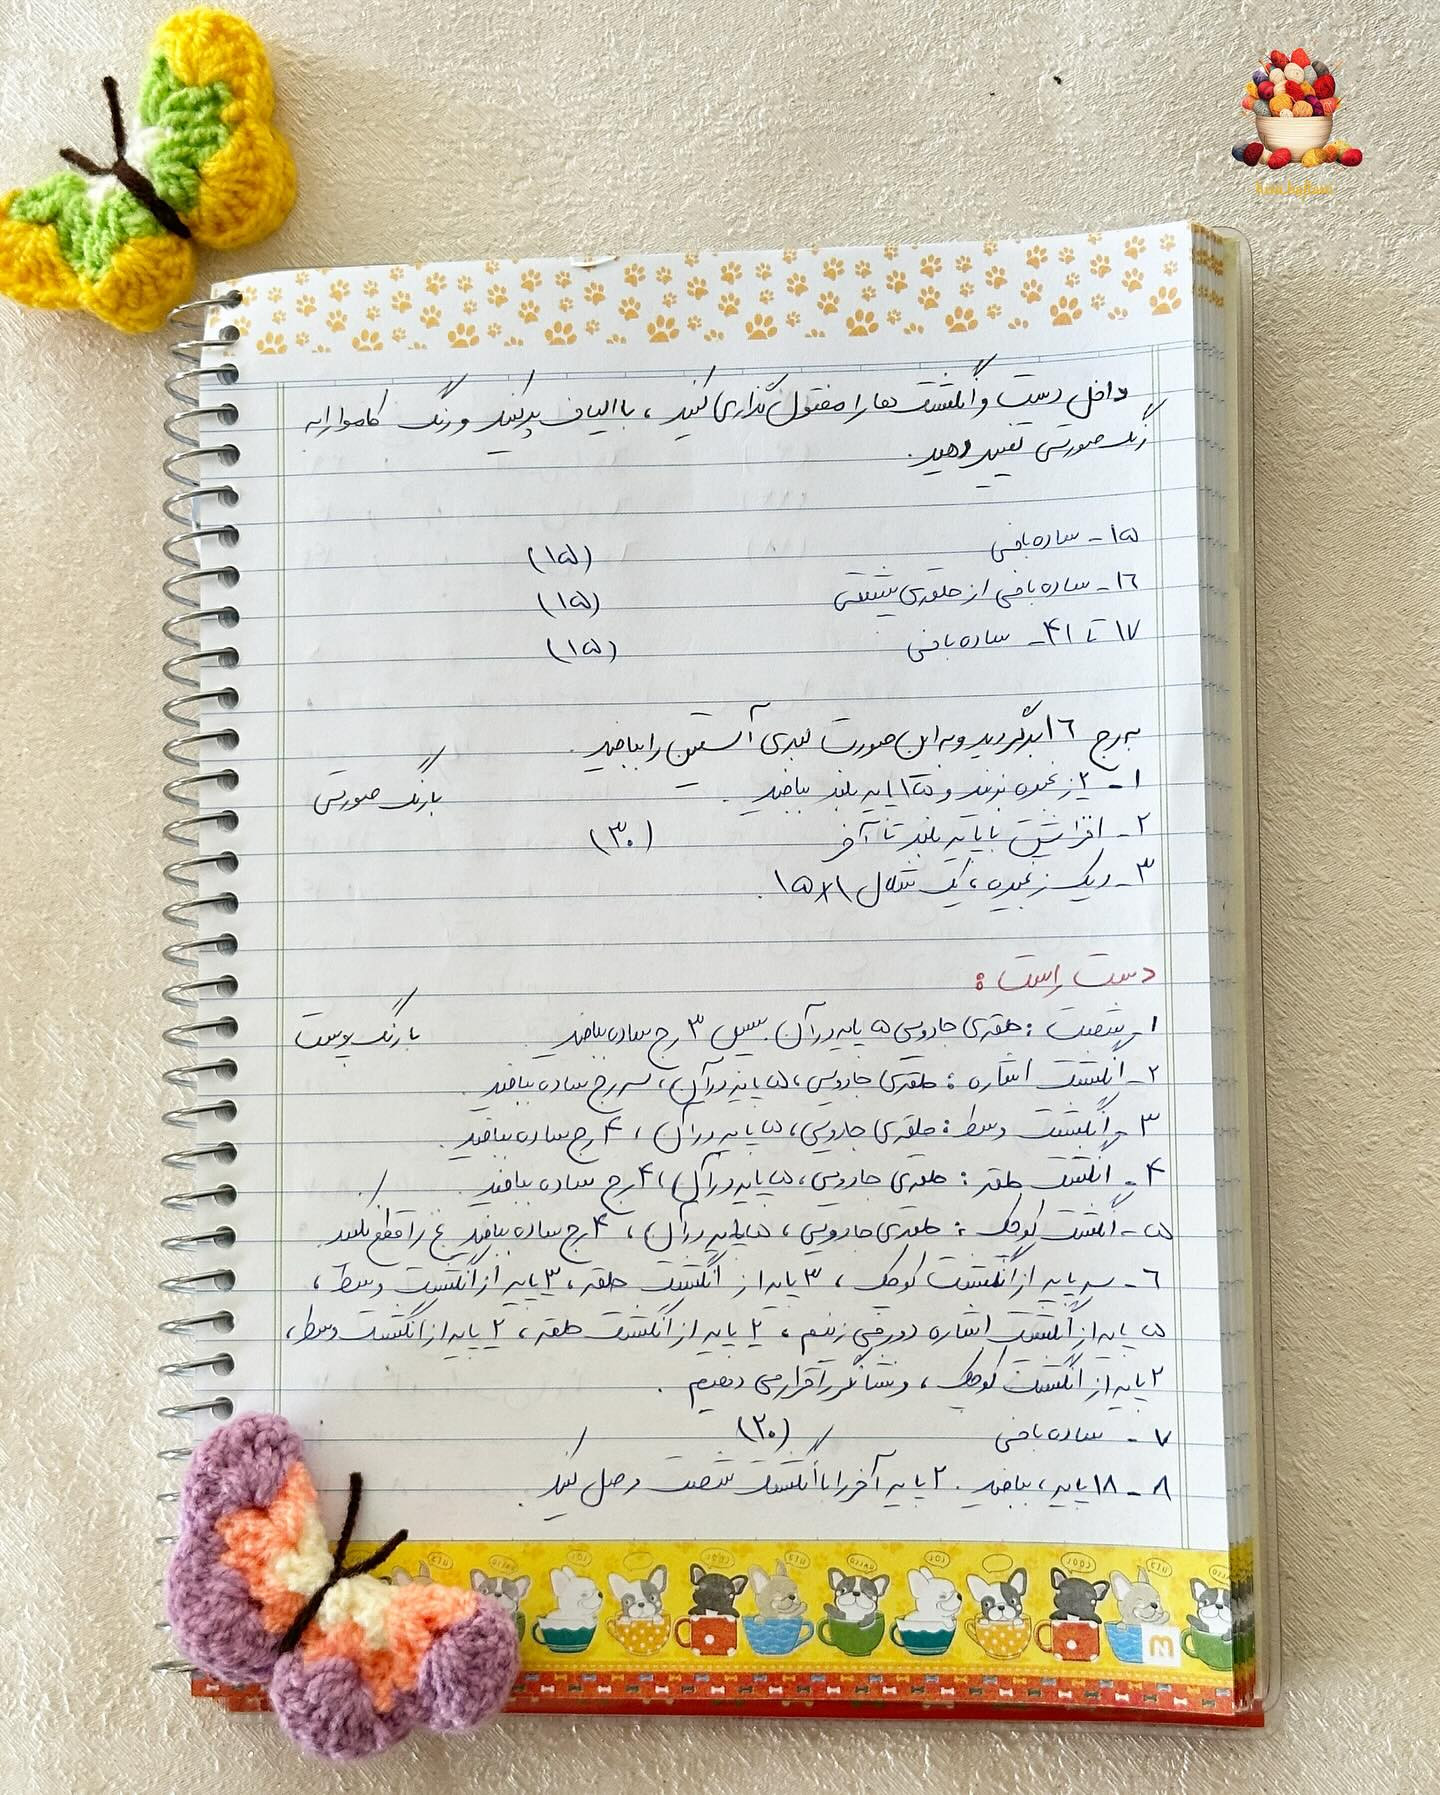 داخل دست و انگشت ها را مفتول گذاری کنید ، با الیاف پر کنید و رنگ کاموا را به
رنگ صورتی تغییر دهید.
۱۵- ساده بافی (۱۵)
۱۶- ساده بافی از حلقه‌ی پشتی (۱۵)
۱۷ تا ۴۱- ساده بافی (۱۵)
به رج ۱۶ برگردید و به این صورت لبه‌ی آستین را ببافید.
۱- ۲ زنجیره بزنید و ۱۵ تا پایه بلند ببافید. با رنگ صورتی
۲- افزایش با پایه بلند تا آخر (۳۰)
۳- و یک زنجیره ، یک شلال ۱۵×۱.
دست راست :
۱- شصت : حلقه‌ی جادویی ۵ پایه در آن. سپس ۳ رج ساده ببافید. با رنگ پوست
۲- انگشت اشاره : حلقه‌ی جادویی ، ۵ پایه در آن ، سه رج ساده ببافید.
۳- انگشت وسط : حلقه‌ی جادویی ، ۵ پایه در آن ، ۴ رج ساده ببافید.
۴- انگشت حلقه : حلقه‌ی جادویی ، ۵ پایه در آن ، ۴ رج ساده ببافید.
۵- انگشت کوچک : حلقه‌ی جادویی ، ۵ پایه در آن ، ۴ رج ساده ببافید نخ را قطع نکنید.
۶- سه پایه از انگشت کوچک ، ۳ پایه از انگشت حلقه ، ۳ پایه از انگشت وسط ،
۵ پایه از انگشت اشاره دور می زنیم ، ۲ پایه از انگشت حلقه ، ۲ پایه از انگشت وسط ،
۲ پایه از انگشت کوچک ، و نشانگر را قرار می دهیم.
۷- ساده بافی (۲۰)
۸- ۱۸ پایه ، ببافید. ۲ پایه آخر را با انگشت شصت وصل کنید.